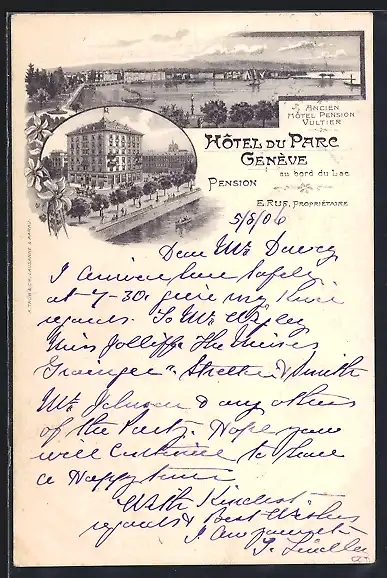 Ancien
Hôtel Pension
Vultier
Hôtel du Parc
Genève
au bord du Lac
Pension
E. Ruf, Propriétaire
5/8/06
Dear Mr
I arrive here safely
at 7-30. give my kind
regards. To Mr
Miss Jolliffe The Misses
Grainger & Smith
Mr Johnson & any others
of the Party. Hope you
will continue to have
a Happy time
With Kindest
regards & Best Wishes
I am